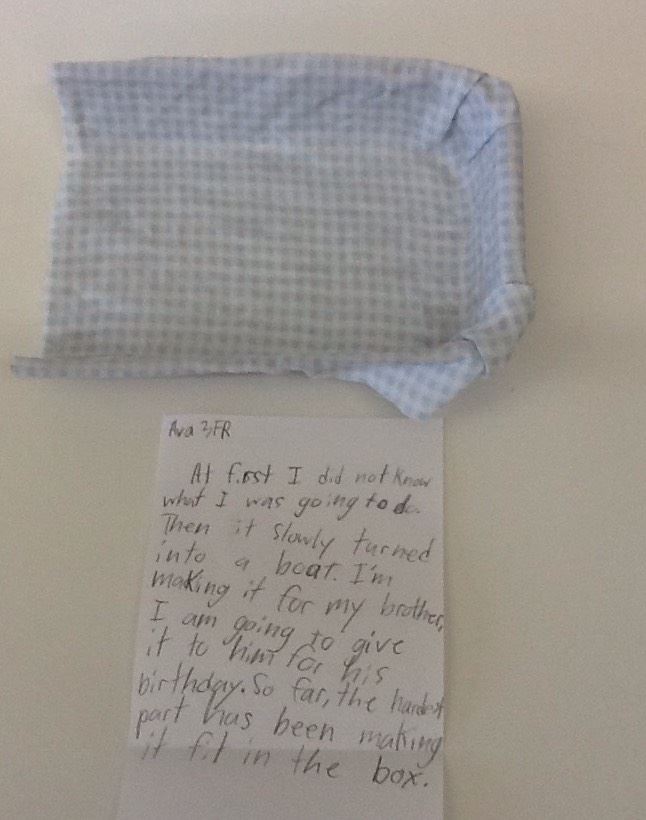 Ava 3FR
At first I did not know
what I was going to do.
Then it slowly turned
into a boat. I'm
making it for my brother,
I am going to give
it to him for his
birthday. So far, the hardest
part has been making
it fit in the box.